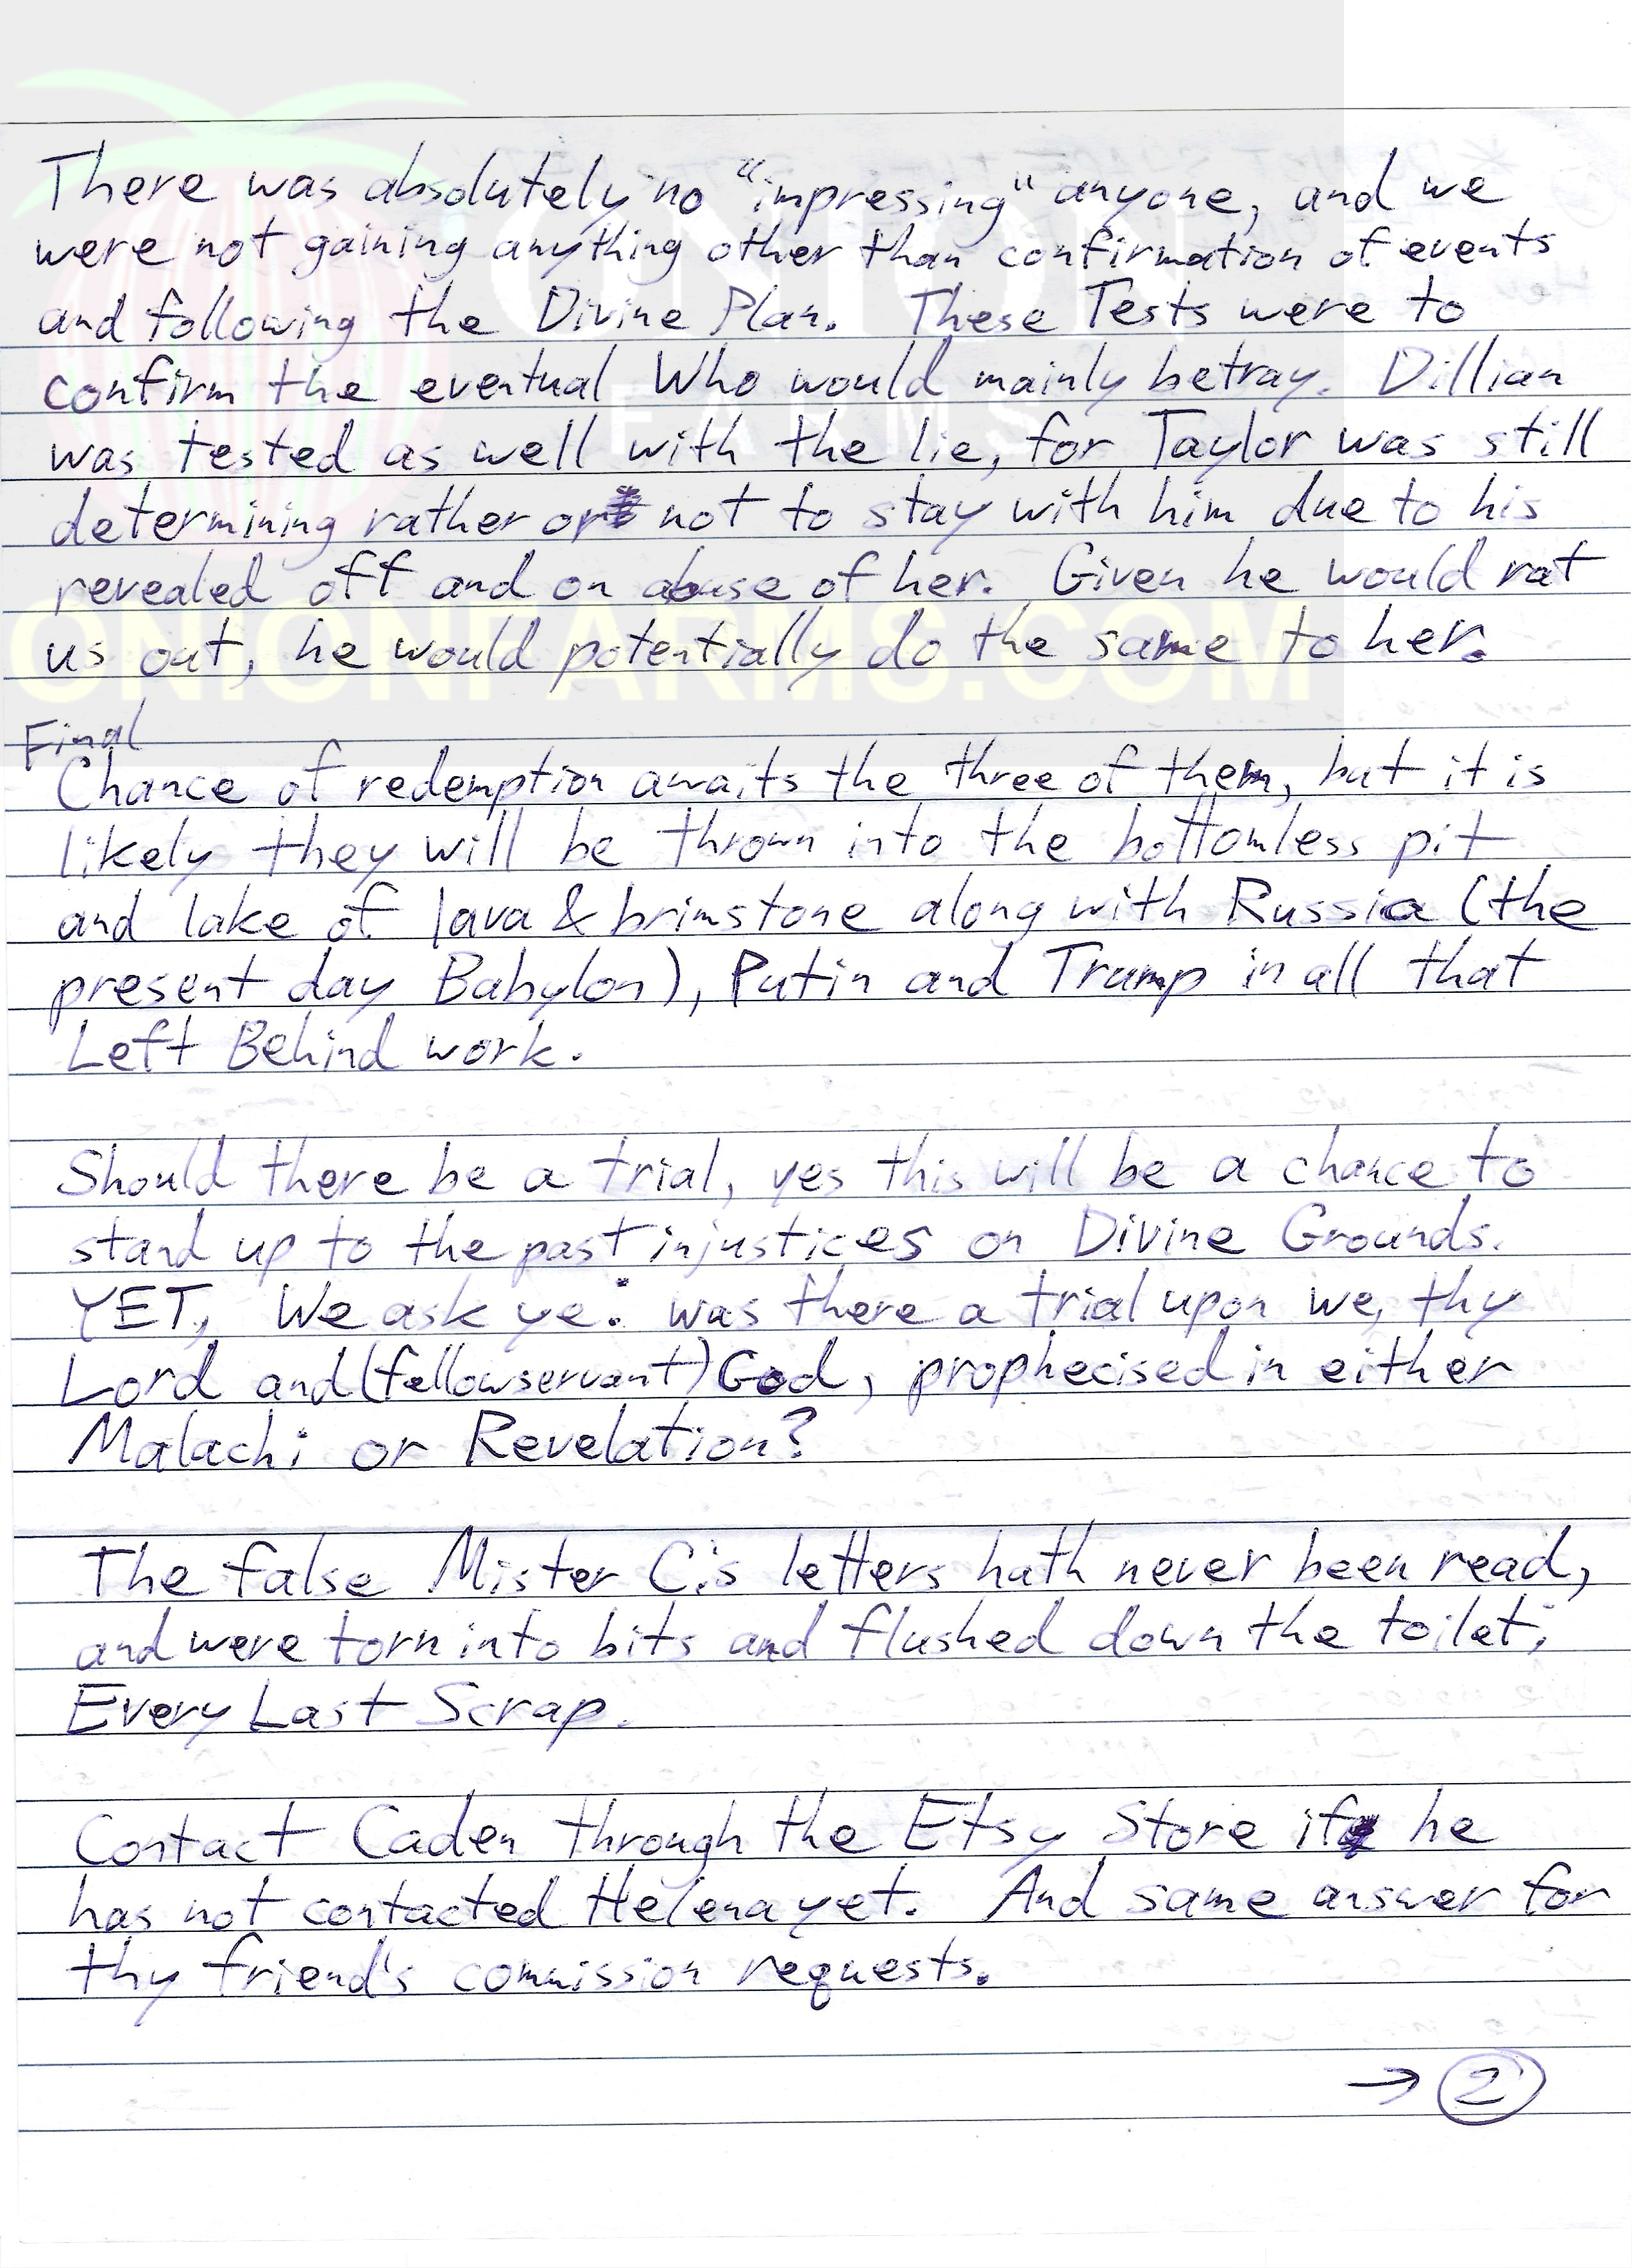 There was absolutely no "impressing" anyone, and we
were not gaining anything other than confirmation of events
and following the Divine Plan. These Tests were to
confirm the eventual Who would mainly betray. Dillian
was tested as well with the lie, for Taylor was still
determining rather or not to stay with him due to his
revealed off and on abuse of her. Given he would rat
us out, he would potentially do the same to her.
Final
Chance of redemption awaits the three of them, but it is
likely they will be thrown into the bottomless pit
and lake of lava & brimstone along with Russia (the
present day Babylon), Putin and Trump in all that
Left Behind work.
Should there be a trial, yes this will be a chance to
stand up to the past injustices on Divine Grounds.
YET, We ask ye: was there a trial upon we, thy
Lord and (fellowservant) God, prophecised in either
Malachi or Revelation?
The false Mister C.'s letters hath never been read,
and were torn into bits and flushed down the toilet;
Every Last Scrap.
Contact Caden through the Etsy Store if he
has not contacted Helena yet. And same answer for
thy friend's commission requests.
→ 2
ONION
FARMS
ONIONFARMS.COM